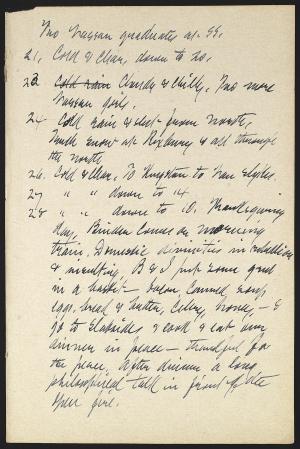 Two Vassar graduates at SS.
21, Cold & Clear, down to 20.
23 Cold rain Cloudy & chilly. Two more
Vassar girls.
24 Cold rain & sleet from North,
Much snow at Roxbury & all through
the north
26. Cold & Clear, To Kingston to Van
27 " " down to 14
28 " " down to 10, Thanksgiving
day, Binder comes on morning
train, Domestic divinities in rebellion
& insulting, B & I put some grub
in a basket — bacon canned soup,
eggs, bread & butter, Celery, honey, — &
go to Slabsides & cook & eat our
dinner in peace — thankful for
the peace. After dinner a long
philosophical talk in front of the
open fire.